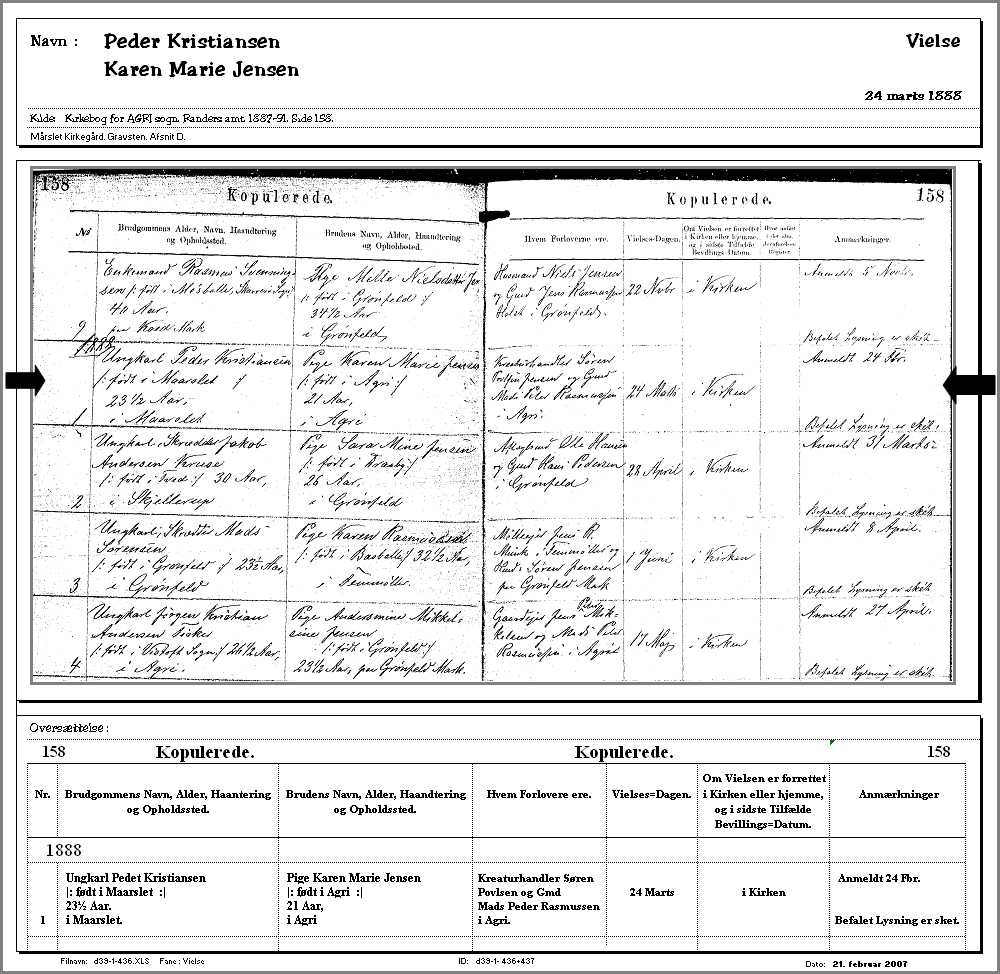 Navn : Peder Kristiansen Vielse
Karen Marie Jensen
24 marts 1888
Kilde: Kirkebog for AGRI sogn. Randers amt. 1887-91. Side 158.
Mårslet Kirkegård. Gravsten. Afsnit D.
158 Kopulerede. Kopulerede. 158
No Brudgommens Alder, Navn, Haandtering og Opholdssted. Brudens Navn, Alder, Haandtering og Opholdssted. Hvem Forloverne ere. Vielses-Dagen. Om Vielsen er forrettet i Kirken eller hjemme, og i sidste Tilfælde Bevillings-Datum. Anmærkninger.
Enkemand Rasmus Svenning-
sen |: født i
40 Aar.
9
Pige Mette Nielsdatter
|: født i Grønfeld :|
34 1/2 Aar
i Grønfeld
Husmand Niels Jensen
og Gmd Jens Rasmussen
i Grønfeld.
22 Novbr
i Kirken
Anmeldt 5 Novbr.
Befalet Lysning er sket.
1888
Ungkarl Peder Kristiansen
|: født i Maarslet :|
23 1/2 Aar,
1 i Maarslet
Pige Karen Marie Jensen
|: født i Agri :|
21 Aar,
i Agri
Kreaturhandler Søren
Jensen og Gmd
Mads Peder Rasmussen
i Agri.
24 Marts
i Kirken
Anmeldt 24 Fbr.
Befalet Lysning er sket.
Ungkarl, Skrædder Jakob
Andersen Kruse
|: født i Tved :| 30 Aar,
2 i Skjellerup
Pige Sara Mine Jensen
|: født i
26 Aar,
i Grønfeld
Aftægtsmd Ole Hansen
og Gmd Hans Pedersen
i Grønfeld
28 April
i Kirken
Anmeldt 31 Marts
Befalet Lysning er sket.
Ungkarl, Skrædder Mads
Sørensen
|: født i Grønfeld :| 23 1/2 Aar,
3 i Grønfeld
Pige Karen Rasmussen
|: født i Basballe :| 32 1/2 Aar,
i Femmøller.
Mølleejer Jens R.
Munk i Femmøller og
Søren Jensen
paa Grønfeld Mark
1 Juni
i Kirken
Anmeldt 8 April.
Befalet Lysning er sket.
Ungkarl Jørgen Kristian
Andersen Fisker
|: født i Vistoft Sogn :| 26 1/2 Aar,
4. i Agri.
Pige Andersmine Mikkel-
sine Jensen
|: født i Grønfeld :|
23 1/2 Aar, paa Grønfeld Mark.
Gaardejer Jens Peder Mik-
kelsen og Mads Peder
Rasmussen i Agri
17 Maj
i Kirken
Anmeldt 27 April.
Befalet Lysning er sket.
Oversættelse :
158 Kopulerede. Kopulerede. 158
Nr. Brudgommens Navn, Alder, Haantering og Opholdssted. Brudens Navn, Alder, Haandtering og Opholdssted. Hvem Forlovere ere. Vielses=Dagen. Om Vielsen er forrettet i Kirken eller hjemme, og i sidste Tilfælde Bevillings=Datum. Anmærkninger
1888
Ungkarl Pedet Kristiansen
|: født i Maarslet :|
23½ Aar.
1 i Maarslet.
Pige Karen Marie Jensen
|: født i Agri :|
21 Aar,
i Agri
Kreaturhandler Søren
Povlsen og Gmd
Mads Peder Rasmussen
i Agri.
24 Marts
i Kirken
Anmeldt 24 Fbr.
Befalet Lysning er sket.
Filnavn: d39-1-436.XLS Fane : Vielse ID: d39-1- 436+437 Dato: 21. februar 2007